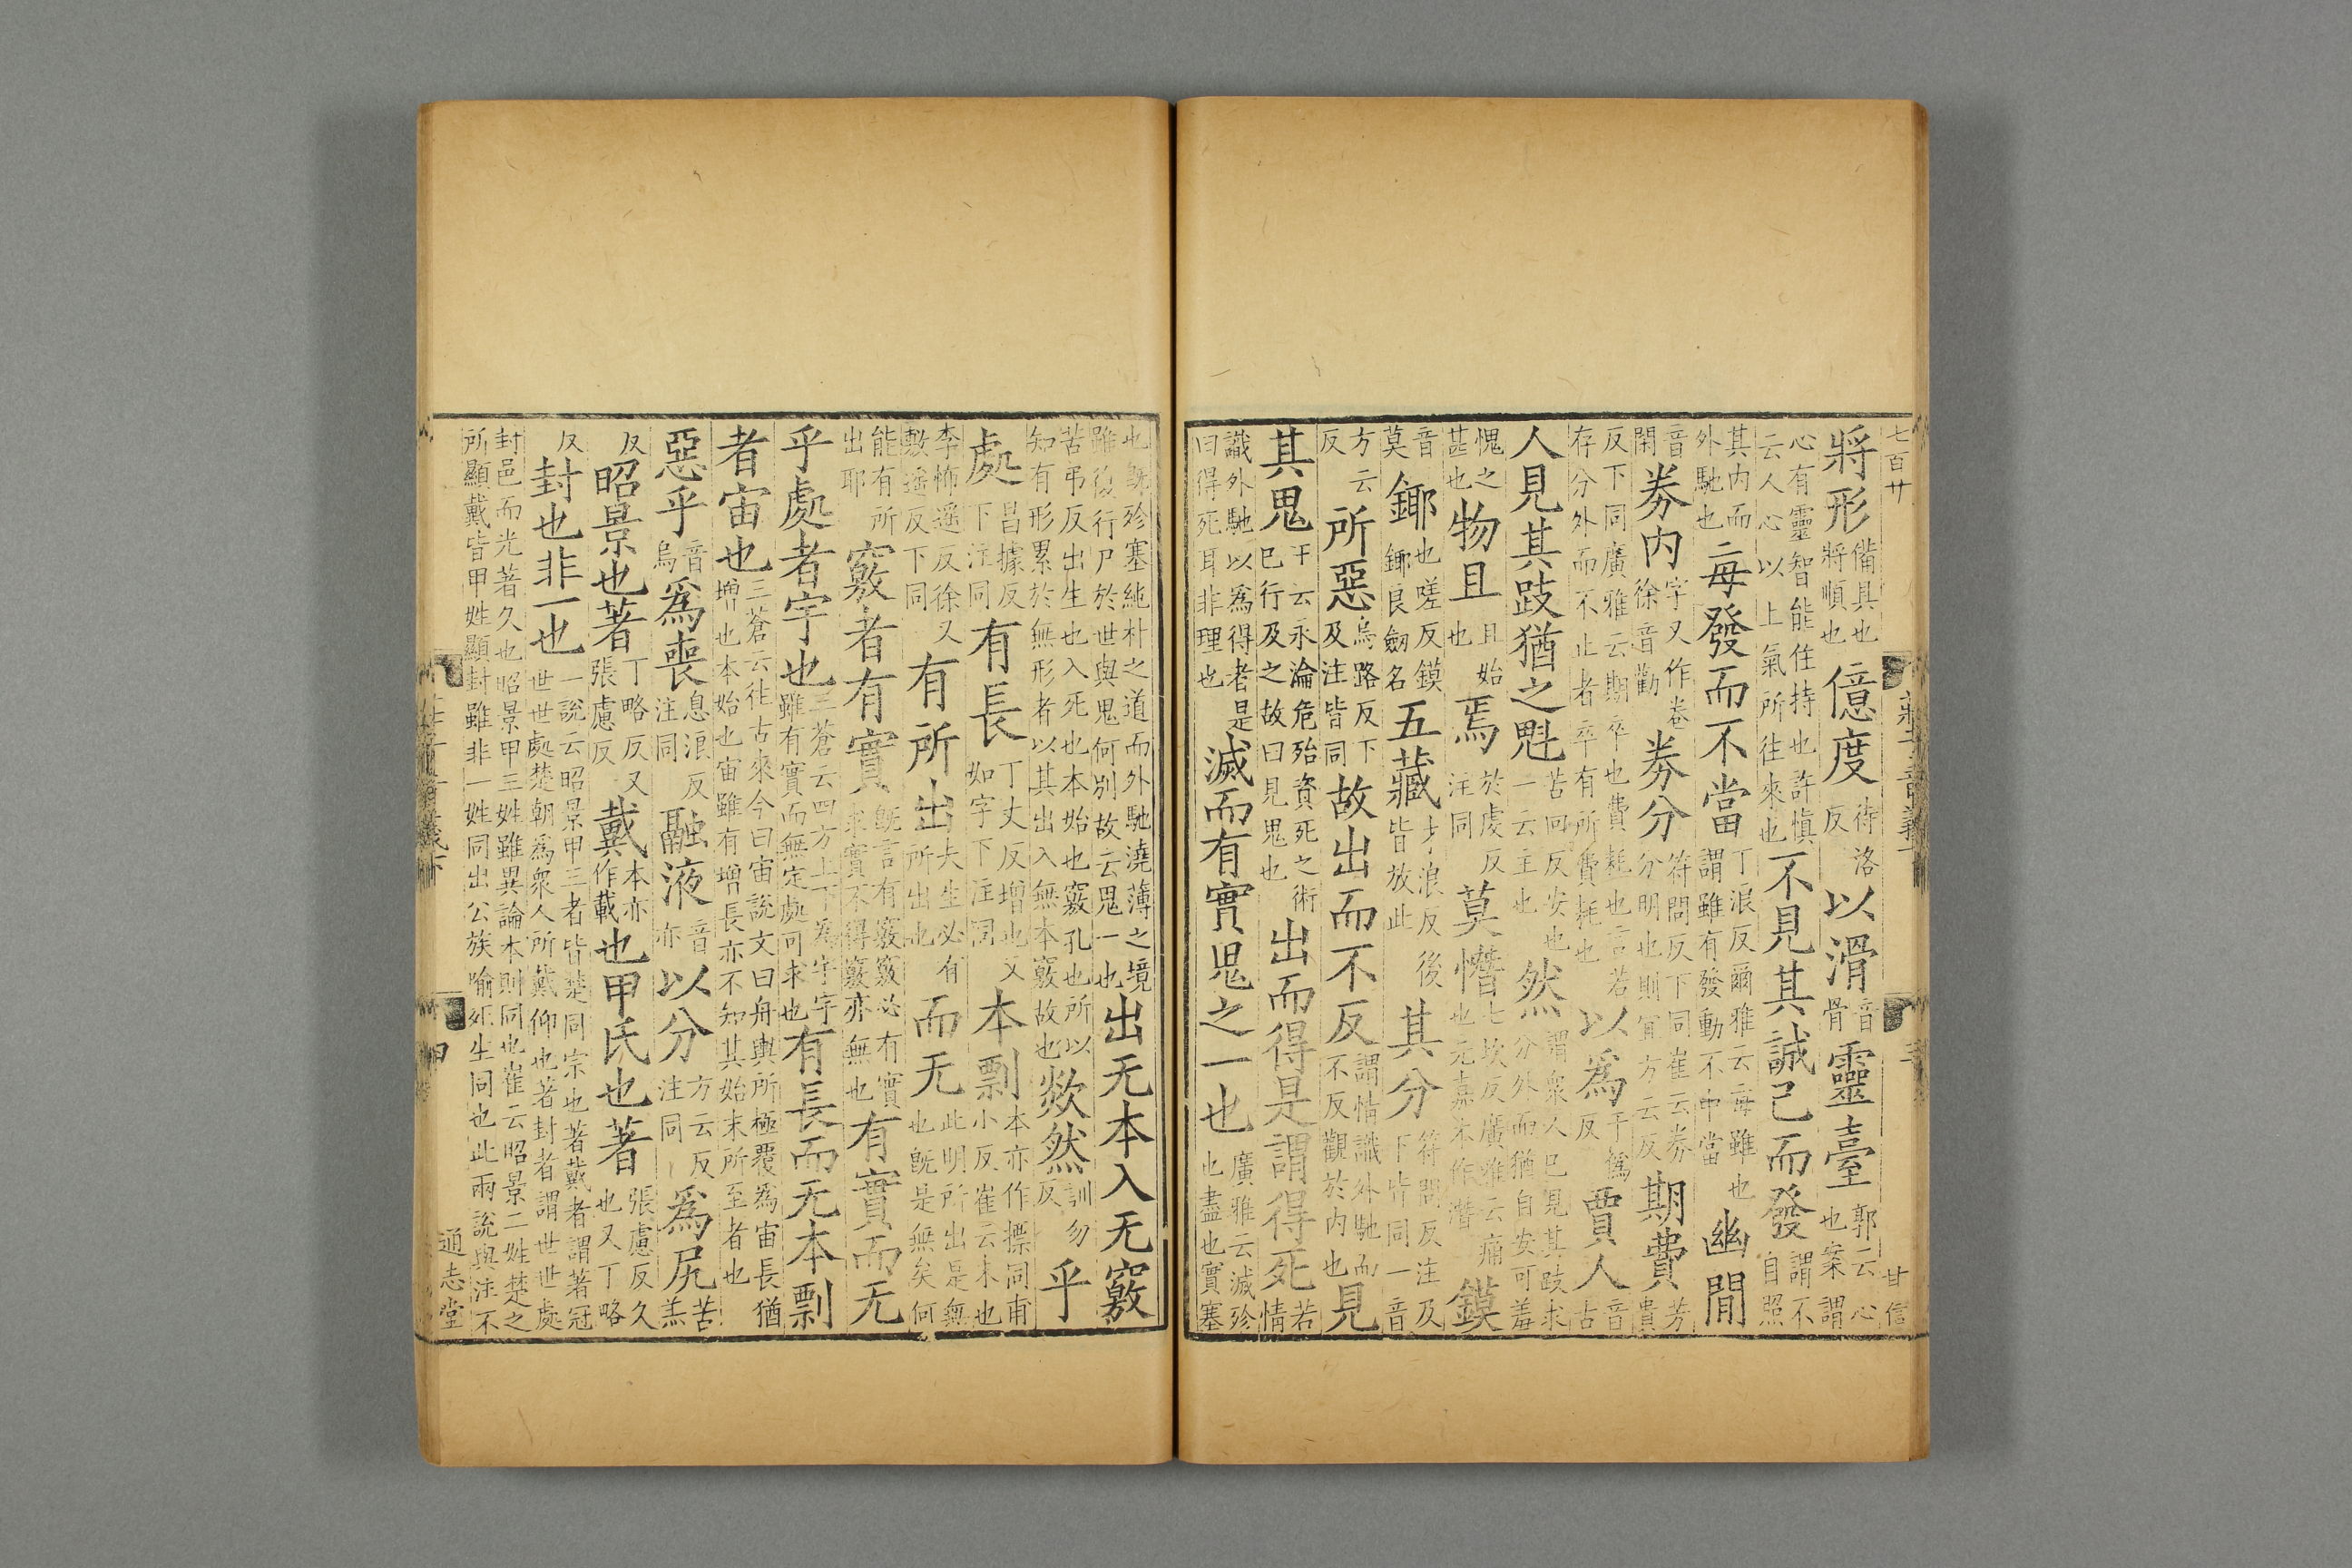 七百廿 甘信
將形備具也將順也億度待洛反以滑音骨靈臺郭云心也案謂
心有靈智能任持也許慎云人心以上氣所往來也不見其誠己而發謂不自照
其内而外馳也毎發而不當丁浪反爾雅云毎雖也謂雖有發動不中當幽閒
音閑券内字又作卷徐音勸券分符問反下同崔云券分明也則宜方云反期費芳貴
反下同廣雅云期卒也費耗也言若存分外而不止者卒有所費耗也以爲于僞反賈人音古
人見其跂猶之魁苦回反安也一云主也然謂衆人已見其跂求分外而猶自安可羞
愧之甚也物且且始也焉於虔反注同莫憯七坎反廣雅云痛也元嘉本作潛鏌
音莫鎁也嗟反鏌鎁良劒名五藏才浪反後皆放此其分符問反注及下皆同一音
方云反所惡烏路反下及注皆同故出而不反謂情識外馳而不反觀於内也見
其鬼王云永淪危殆資死之術已行及之故曰見鬼也出而得是謂得死若情
識外馳以爲得者是曰得死耳非理也滅而有實鬼之一也廣雅云滅殄也盡也實塞
也旣殄塞純朴之道而外馳澆薄之境雖復行尸於世與鬼何别故云鬼一也出无本入无竅
苦弔反出生也入死也本始也竅孔也所以知有形累於無形者以其出入無本竅故也欻然訓勿反乎
處昌據反下注同有長丁丈反增也又如字下注同本剽本亦作摽同甫小反崔云末也
李怖遥反徐又敷遥反下同有所出夫生必有所出也而无此明所出是無也旣是無矣何
能有所出耶竅者有實旣言有竅竅必有實求實不得竅亦無也有實而无
乎處者宇也三蒼云四方上下爲宇宇雖有實而無定處可求也有長而无本剽
者宙也三蒼云往古來今曰宙說文曰舟輿所極覆爲宙長猶増也本始也宙雖有增長亦不知其始末所至者也
惡乎音烏爲喪息浪反注同融液音亦以分方云反注同爲尻苦羔
反昭景也著丁略反又張慮反戴本亦作載也甲氏也著張慮反久也又丁略
反封也非一也一說云昭景甲三者皆楚同宗也著戴者謂著冠世世處楚朝爲衆人所戴仰也著封者謂世世處
封邑而光著久也昭景甲三姓雖異論本則同也崔云昭景二姓楚之所顯戴皆甲姓顯封雖非一姓同出公族喻死生同也此兩說與注不
通志堂